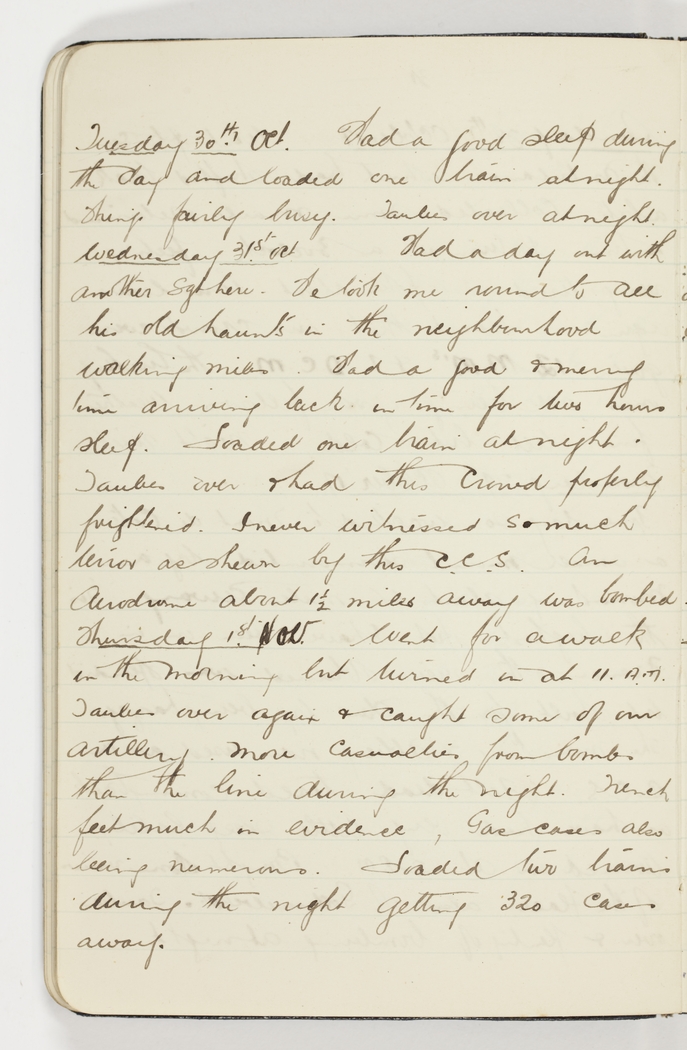 Tuesday 30th Oct. Had a good sleep during
the day and loaded one train at night.
Things fairly busy. Taubes over at night.
Wednesday 31st Oct Had a day out with
another Sgt here. He took me round to all
his old haunts in the neighbourhood
walking miles. Had a good & merry
time arriving back in time for two hours
sleep. Loaded one train at night.
Taubes over & had this Crowd properly
frightened. I never witnessed so much
terror as shewn by this C.C.S. An
Aerodrome about 1½ miles away was bombed.
Thursday 1st Nov. Went for a walk
in the morning but turned in at 11. A.M.
Taubes over again & caught some of our
artillery. More casualties from bombs
than the line during the night. Trench
feet much in evidence, Gas cases also
being numerous. Loaded two trains
during the night getting 320 cases
away.